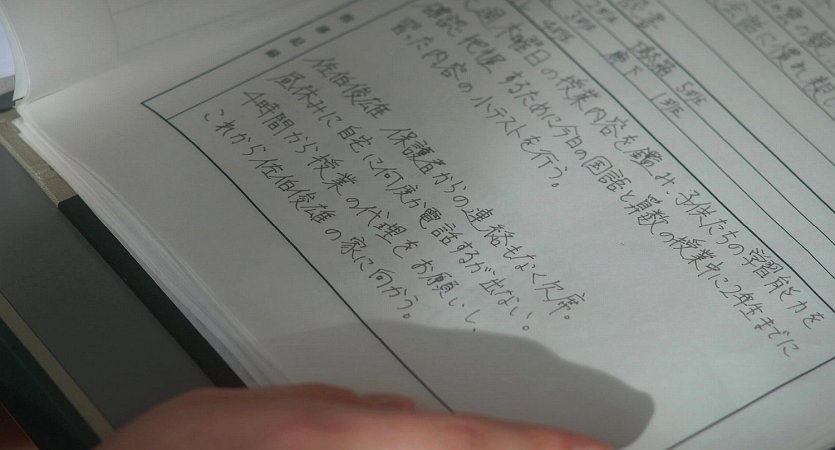 会話に慣れ親し
読書
教室 5班
3班 廊下 1班
4班
週木曜日の授業内容を鑑み、子供たちの学習能力を
確認、把握するために今日の国語と算数の授業中に2年生までに
習った内容の小テストを行う。
記
録
佐伯俊雄 保護者からの連絡もなく欠席。
昼休みに自宅に何度か電話するが出ない。
4時間から授業の代理をお願いし、
これから佐伯俊雄の家に向かう。